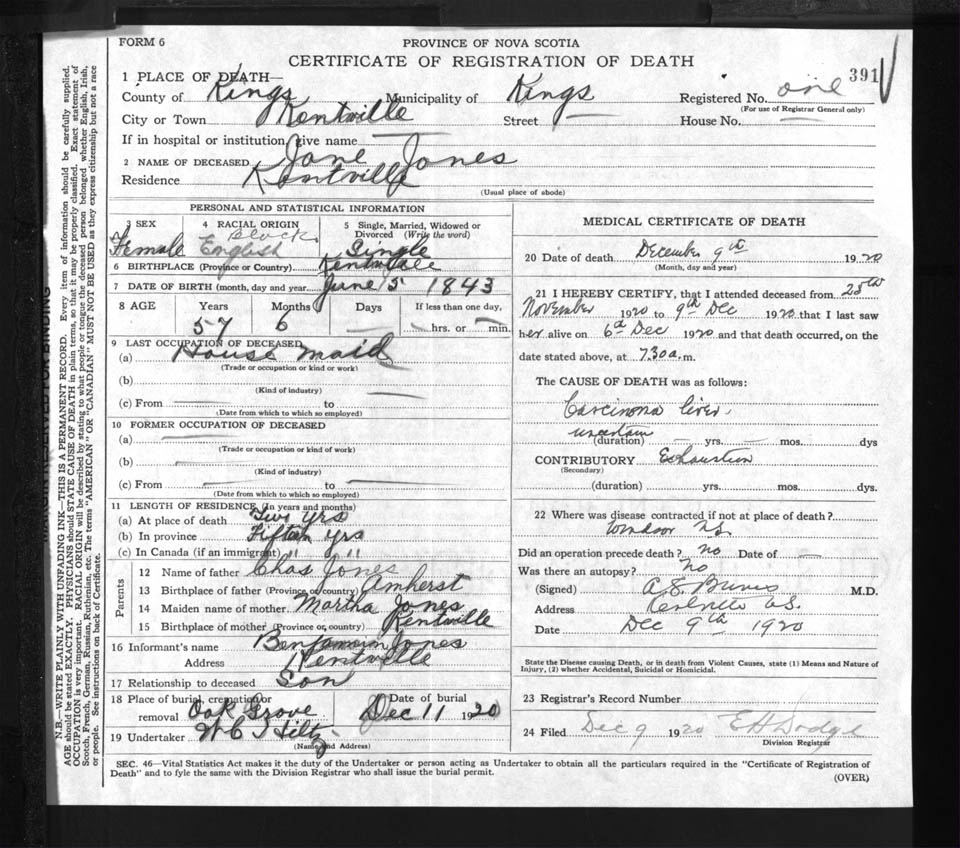 FORM 6
PROVINCE OF NOVA SCOTIA
CERTIFICATE OF REGISTRATION OF DEATH
391
1 PLACE OF DEATH—
County of Kings Municipality of Kings Registered No. one
(For use of Registrar General only)
City or Town Kentville Street — House No. —
If in hospital or institution, give name —
2 NAME OF DECEASED Jane Jones
Residence Kentville
(Usual place of abode)
PERSONAL AND STATISTICAL INFORMATION
3 SEX 4 RACIAL ORIGIN 5 Single, Married, Widowed or Divorced (Write the word)
Female English Black Single
6 BIRTHPLACE (Province or Country) Kentville
7 DATE OF BIRTH (month, day and year) June 5 1843
8 AGE Years Months Days If less than one day,
57 6 — — hrs. or — min.
9 LAST OCCUPATION OF DECEASED
(a) House maid
(Trade or occupation or kind or work)
(b) —
(Kind of industry)
(c) From — to —
(Date from which to which so employed)
10 FORMER OCCUPATION OF DECEASED
(a) —
(Trade or occupation or kind of work)
(b) —
(Kind of industry)
(c) From — to —
(Date from which to which so employed)
11 LENGTH OF RESIDENCE (In years and months)
(a) At place of death yrs
(b) In province Fifteen yrs
(c) In Canada (if an immigrant) " "
Parents
12 Name of father Chas Jones
13 Birthplace of father (Province or country) Amherst
14 Maiden name of mother Martha Jones
15 Birthplace of mother (Province or country) Kentville
16 Informant's name Benjamin Jones
Address Kentville
17 Relationship to deceased Son
18 Place of burial, cremation or removal Oak Grove Date of burial Dec 11 1920
19 Undertaker W C T Hiltz
(Name and Address)
MEDICAL CERTIFICATE OF DEATH
20 Date of death December 9th 1920
(Month, day and year)
21 I HEREBY CERTIFY, that I attended deceased from 25th
November 1920 to 9th Dec 1920 that I last saw
her alive on 6th Dec 1920 and that death occurred, on the
date stated above, at 7.30 a.m.
The CAUSE OF DEATH was as follows:
Carcinoma liver.
uncertain
(duration) — yrs. — mos. dys
CONTRIBUTORY Exhaustion
(Secondary)
(duration) yrs. mos. dys.
22 Where was disease contracted if not at place of death?
Windsor N.S.
Did an operation precede death? no Date of —
Was there an autopsy? No
(Signed) M.D.
Address
Date Dec 9th 1920
State the Disease causing Death, or in death from Violent Causes, state (1) Means and Nature of
Injury, (2) whether Accidental, Suicidal or Homicidal.
23 Registrar's Record Number
24 Filed Dec 9 1920 E H Dodge
Division Registrar
SEC. 46—Vital Statistics Act makes it the duty of the Undertaker or person acting as Undertaker to obtain all the particulars required in the "Certificate of Registration of
Death" and to fyle the same with the Division Registrar who shall issue the burial permit.
(OVER)
N.B.—WRITE PLAINLY WITH UNFADING INK—THIS IS A PERMANENT RECORD. Every item of information should be carefully supplied.
AGE should be stated EXACTLY. PHYSICIANS should STATE CAUSE OF DEATH in plain terms, so that it may be properly classified. Exact statement of
OCCUPATION is very important. RACIAL ORIGIN will be described by stating to what people or tongue the deceased person belonged whether English, Irish,
Scotch, French, German, Russian, Ruthenian, etc. The terms "AMERICAN" OR "CANADIAN" MUST NOT BE USED as they express citizenship but not a race
or people. See instructions on back of Certificate.